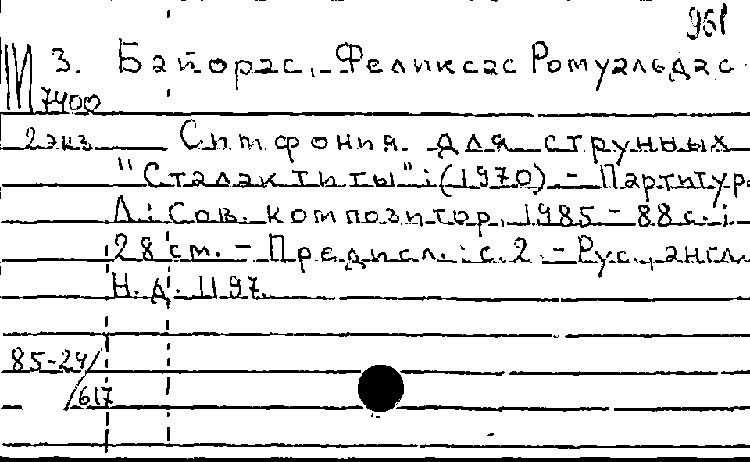 961
М 3. Байорас, Феликсас Ромуальдас.
7400
2 экз Симфония для струнных
"Сталактиты": (1970) - Партитур
Л: Сов. композитор, 1985 - 88 с.;
28 см. - Предисл.: с. 2. - Рус., англ.
Н. д. 1197.
85-24/
617